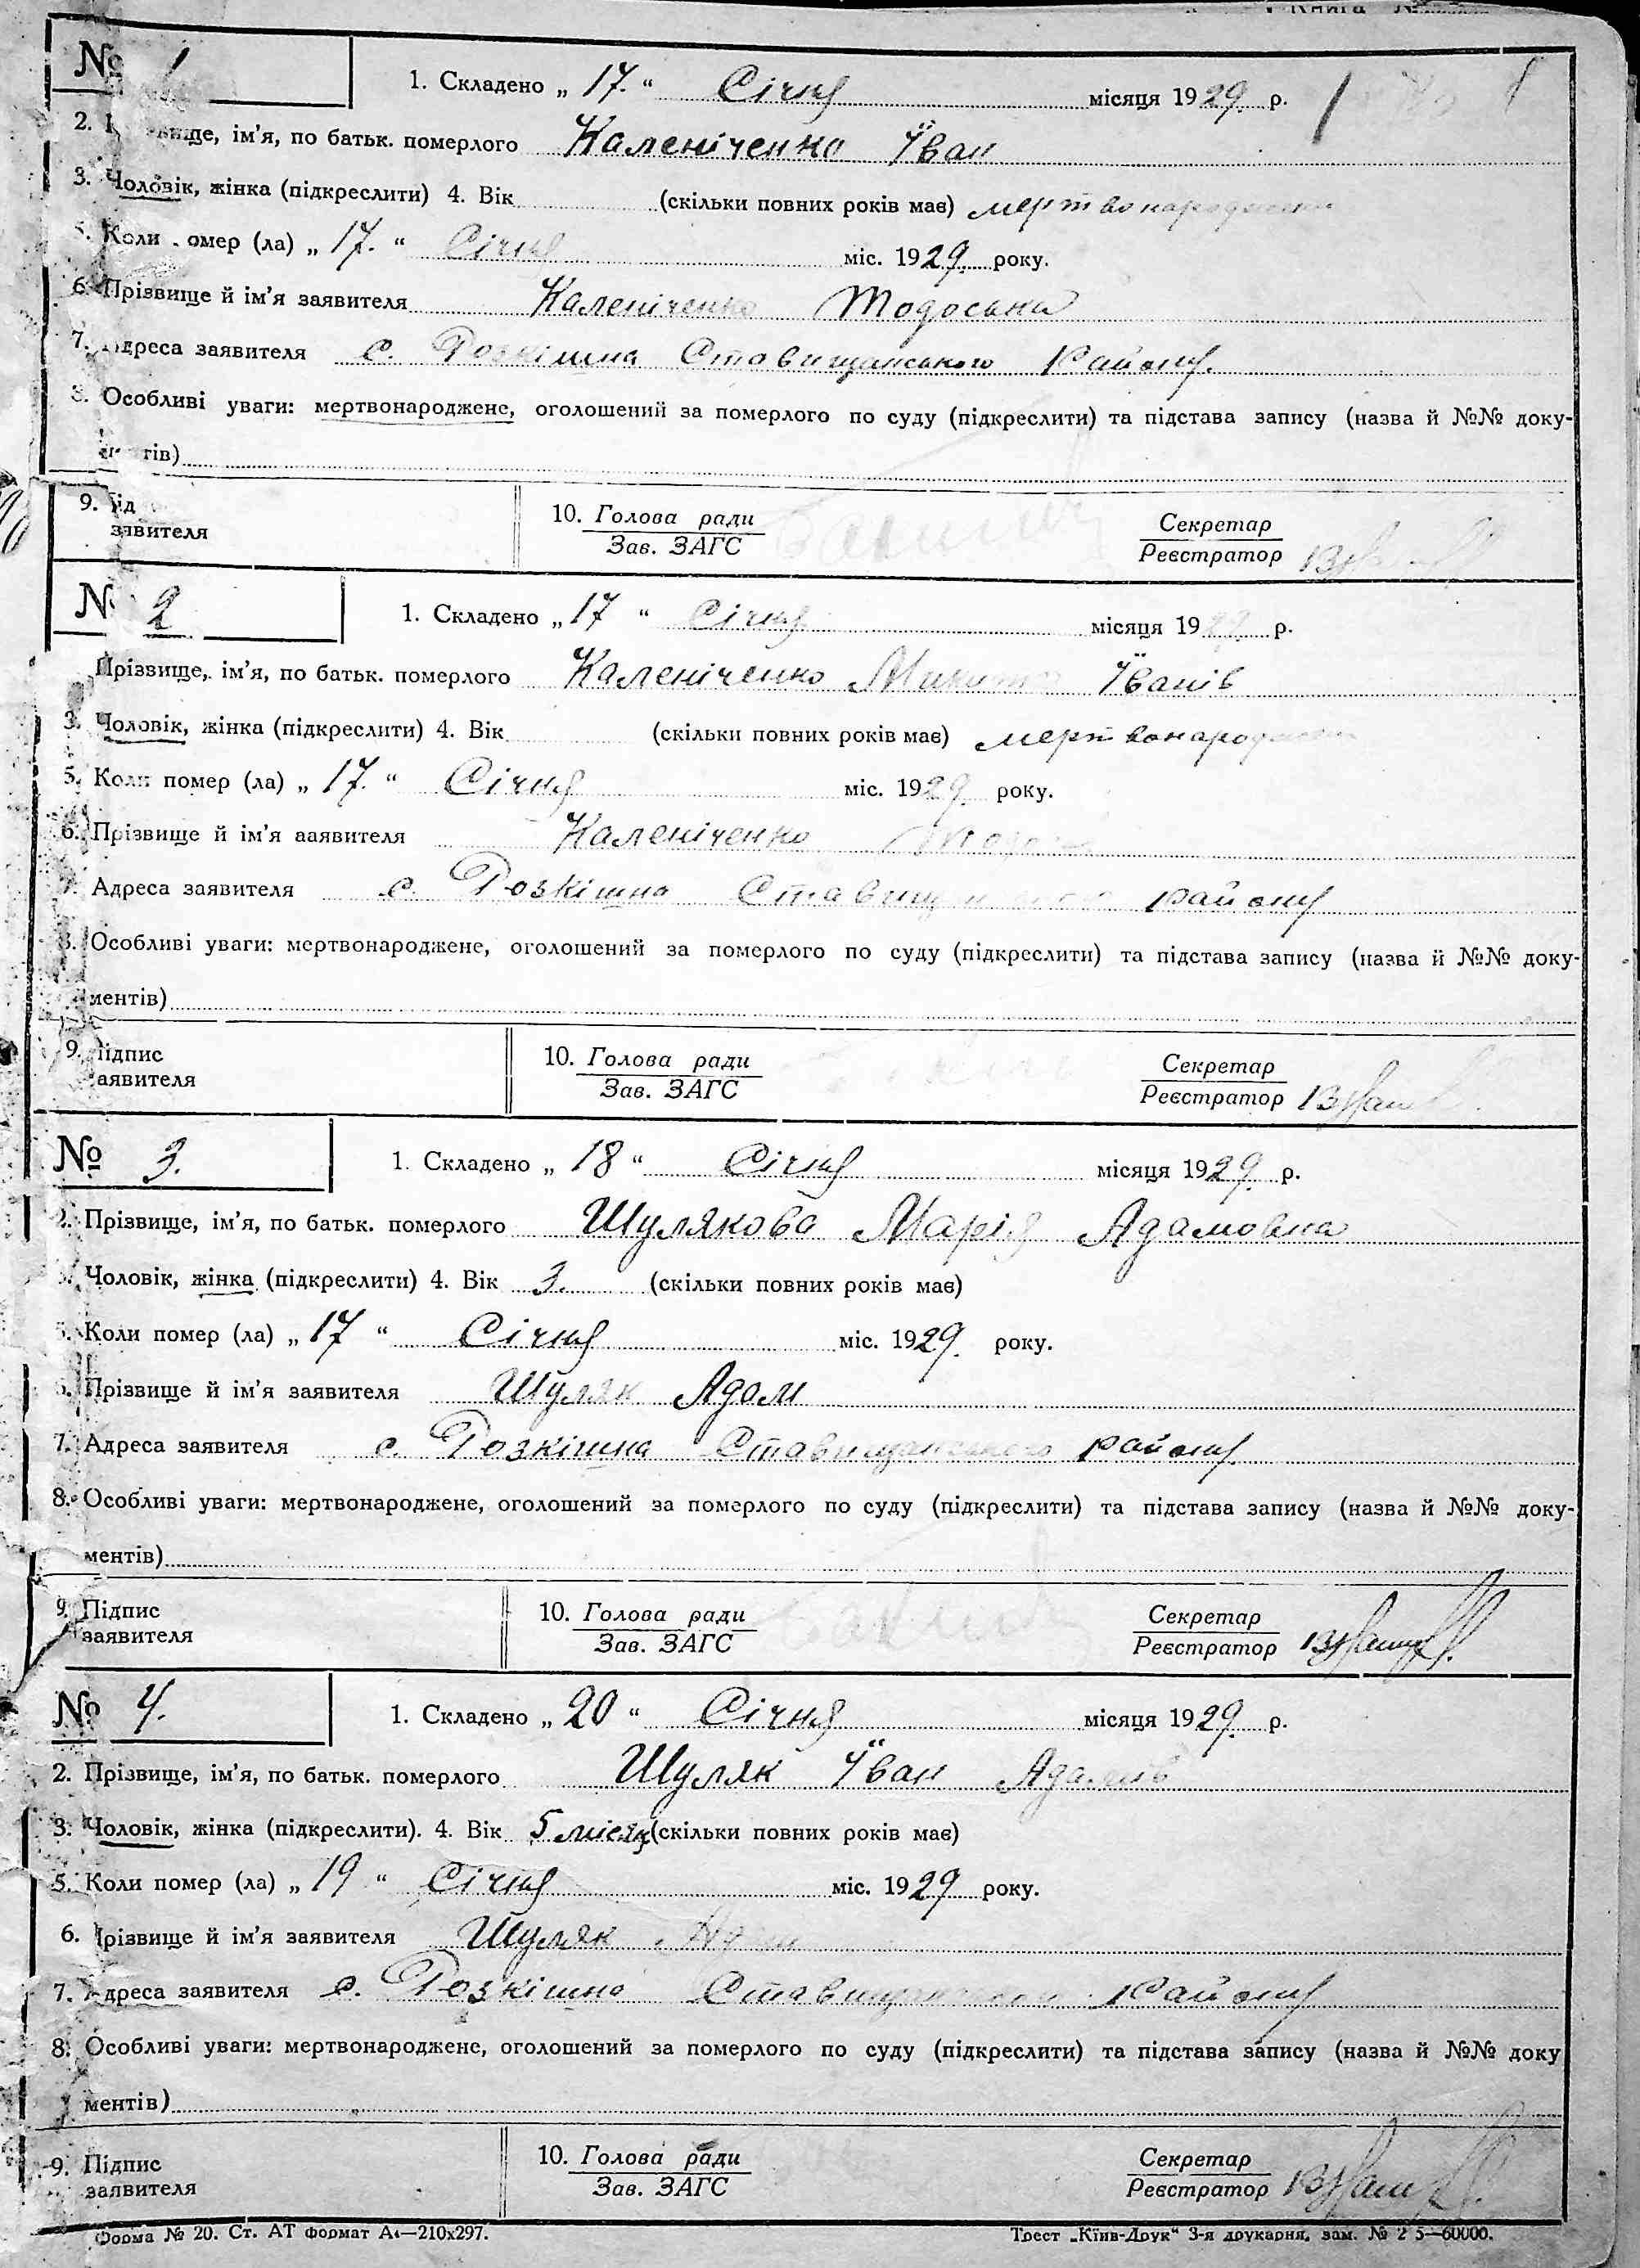 № 1
1. Складено „ 17. “ Січня місяця 1929. р.
2. ім'я, по батьк. померлого Каленіченко Їван
3. Чоловік, жінка (підкреслити) 4. Вік (скільки повних років має) мертвонароджени
5. Коли омер (ла) „ 17. “ Січня міс. 1929. року.
6. Прізвище й ім'я заявителя Каленіченко Тодоська
7. Адреса заявителя с. Розкішна Ставищанського Району.
8. Особливі уваги: мертвонароджене, оголошений за померлого по суду (підкреслити) та підстава запису (назва й №№ доку-
тів)
9. заявителя
10. Голова ради Секретар
Зав. ЗАГС Реєстратор
№ 2
1. Складено „ 17 “ Січня місяця 1929. р.
Прізвище, ім'я, по батьк. померлого Каленіченко Микита Їванів
3. Чоловік, жінка (підкреслити) 4. Вік (скільки повних років має) мертвонароджени
5. Коли помер (ла) „ 17. “ Січня міс. 1929. року.
6. Прізвище й ім'я ааявителя Каленіченко
7. Адреса заявителя с. Розкішна Ставищанського району
8. Особливі уваги: мертвонароджене, оголошений за померлого по суду (підкреслити) та підстава запису (назва й №№ доку-
ментів)
9. Підпис заявителя
10. Голова ради Секретар
Зав. ЗАГС Реєстратор
№ 3.
1. Складено „ 18 “ Січня місяця 1929. р.
2. Прізвище, ім'я, по батьк. померлого Шулякова Марія Адамовна
3. Чоловік, жінка (підкреслити) 4. Вік 3. (скільки повних років має)
5. Коли помер (ла) „ 17 “ Січня міс. 1929. року.
6. Прізвище й ім'я заявителя Шуляк Адам
7. Адреса заявителя с. Розкішна Ставищанського району
8. Особливі уваги: мертвонароджене, оголошений за померлого по суду (підкреслити) та підстава запису (назва й №№ доку-
ментів)
9. Підпис заявителя
10. Голова ради Секретар
Зав. ЗАГС Реєстратор
№ 4.
1. Складено „ 20 “ Січня місяця 1929. р.
2. Прізвище, ім'я, по батьк. померлого Шуляк Їван Адамів
3. Чоловік, жінка (підкреслити). 4. Вік 5 місяц (скільки повних років має)
5. Коли помер (ла) „ 19 “ Січня міс. 1929 року.
6. Прізвище й ім'я заявителя Шуляк Адам
7. Адреса заявителя с. Розкішна Ставищанського Району
8. Особливі уваги: мертвонароджене, оголошений за померлого по суду (підкреслити) та підстава запису (назва й №№ доку
ментів)
9. Підпис заявителя
10. Голова ради Секретар
Зав. ЗАГС Реєстратор
Форма № 20. Ст. АТ формат А4—210x297. Трест „Київ-Друк“ 3-я друкарня, зам. № 2 5—60000.